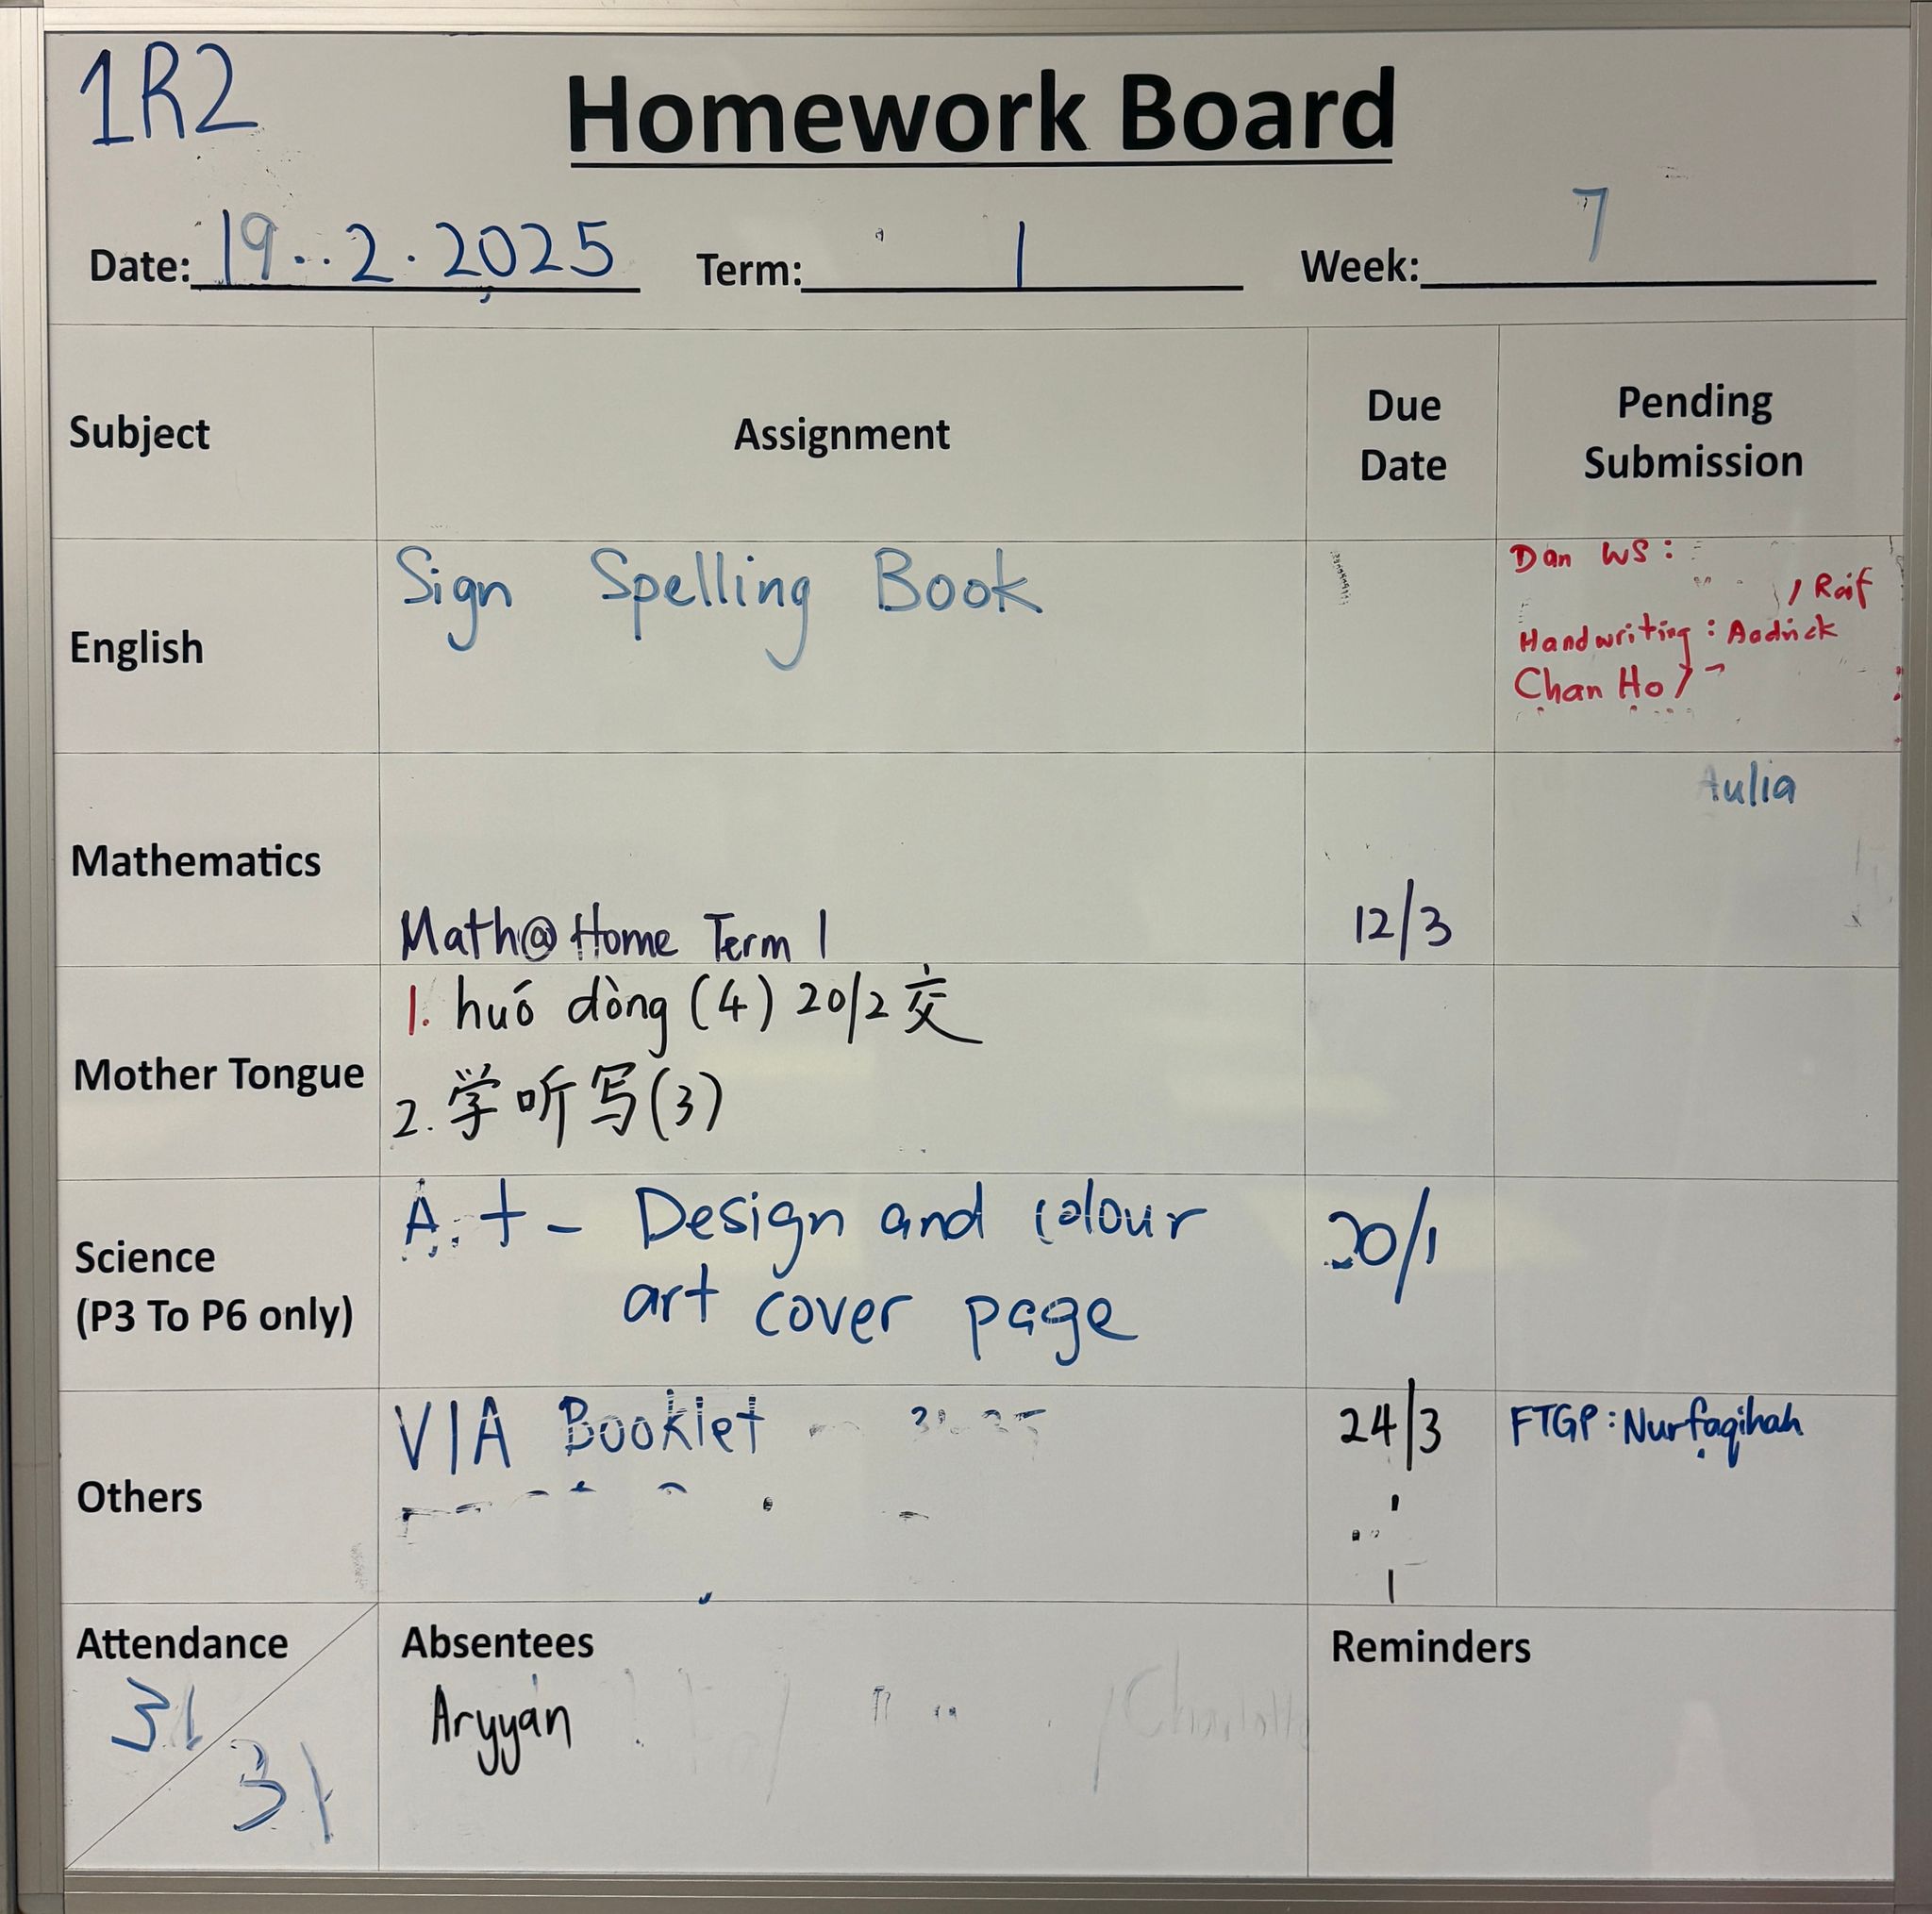 1R2
Homework Board
Date: 19..2.2025 Term: 1 Week: 7
Subject Assignment Due Date Pending Submission
English
Sign Spelling Book
Dan WS:
, Raif
Handwriting: Aadrick
Chan Ho /
Mathematics
Aulia
Math@Home Term 1 12/3
Mother Tongue
1. huó dòng (4) 20/2 交
2. 学听写(3)
Science
(P3 To P6 only)
A t - Design and colour 20/1
art cover page
Others
VIA Booklet 24/3 FTGP: Nurfaqihah
Attendance
31
31
Absentees
Aryyan
Reminders